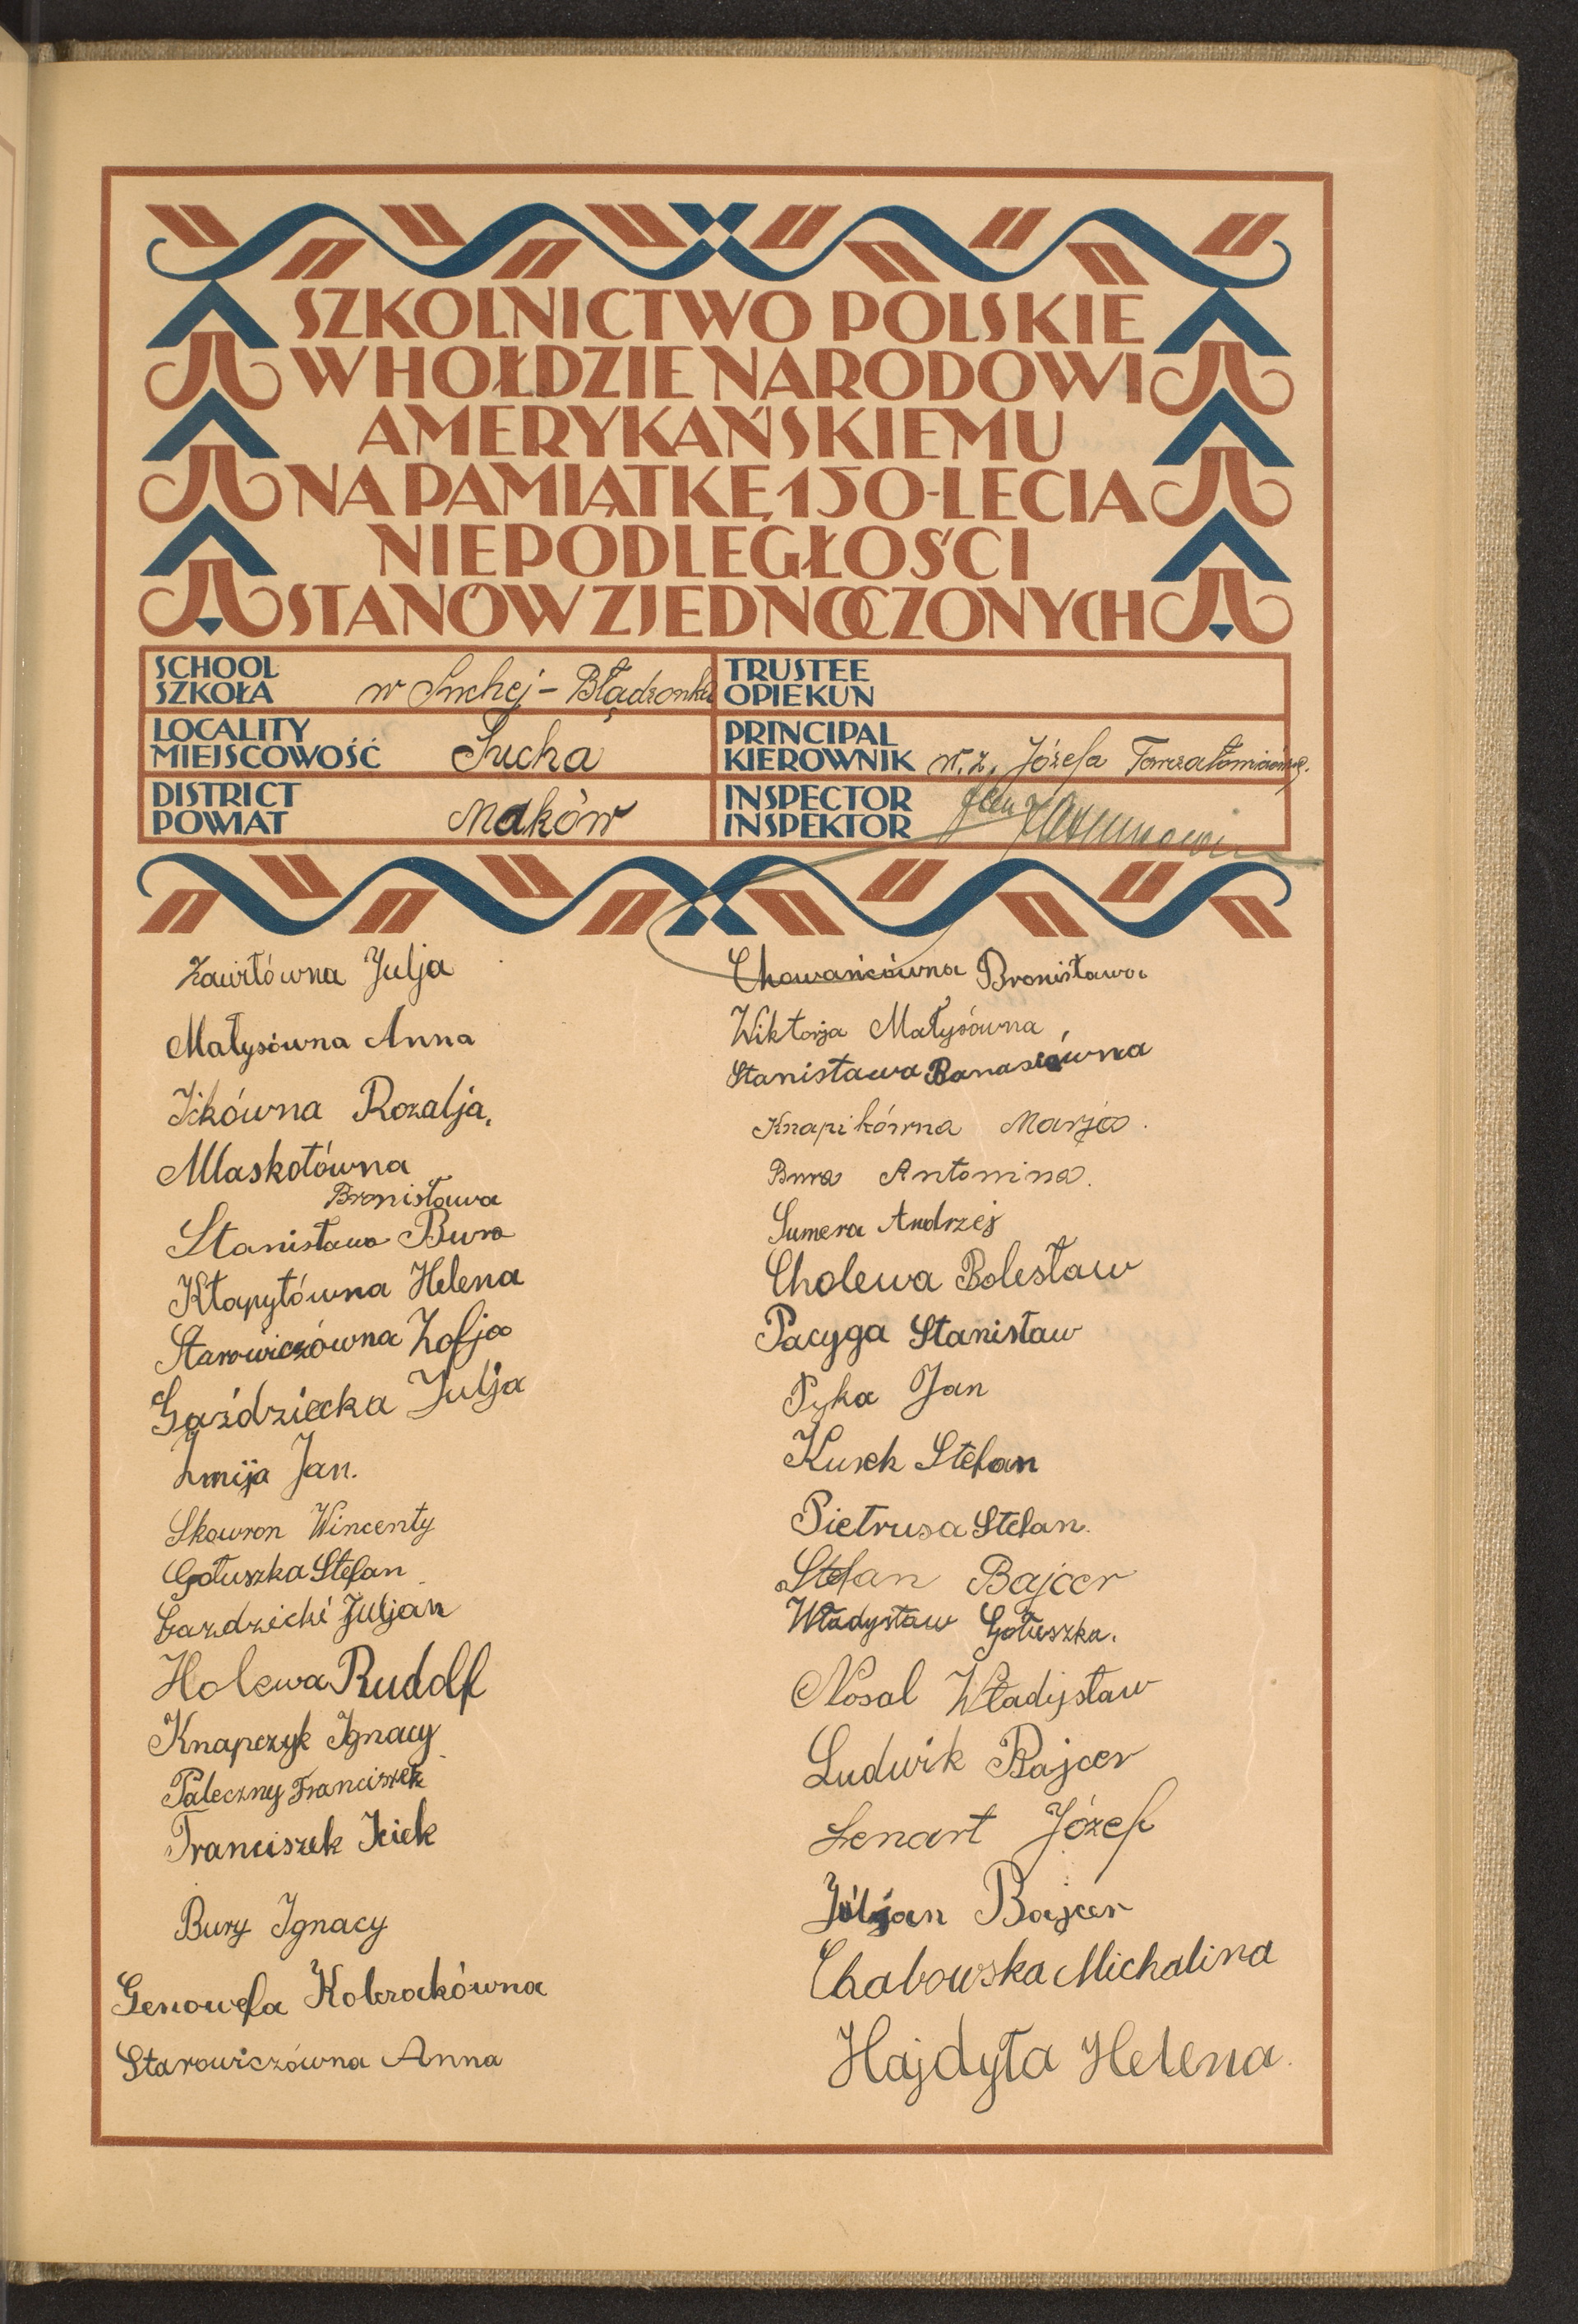 SZKOLNICTWO POLSKIE
W HOŁDZIE NARODOWI
AMERYKAŃSKIEMU
NA PAMIĄTKĘ 150-LECIA
NIEPODLEGŁOŚCI
STANÓW ZJEDNOCZONYCH
SCHOOL
SZKOŁA w Suchej - Błądzonka
TRUSTEE
OPIEKUN
LOCALITY
MIEJSCOWOŚĆ Sucha
PRINCIPAL
KIEROWNIK w. z. Józefa
DISTRICT
POWIAT Maków
INSPECTOR
INSPEKTOR Jan
Zawiłówna Julja
Małysówna Anna
Ickówna Rozalja.
Mlaskotówna
Bronisława
Stanisława Bura
Kłapytówna Helena
Starowiczówna Zofja
Gaździecka Julja
Żmija Jan.
Skowron Wincenty
Gołuszka Stefan
Gazdzicki Juljan
Holewa Rudolf
Knapczyk Ignacy
Paleczny Franciszek
Franciszek Iciek
Bury Ignacy
Genowefa Kobzakówna
Starowiczówna Anna
Chowańcówna Bronisława
Wiktorja Małysówna
Stanisława Banasiówna
Knapikówna Marja.
Bura Antonina.
Sumera Andrzej
Cholewa Bolesław
Pacyga Stanisław
Pyka Jan
Kusek Stefan
Pietrusa Stefan.
Stefan Bajcer
Władysław Gołuszka.
Nosal Władysław
Ludwik Bajcer
Lenart Józef
Juljan Bajcer
Chabowska Michalina
Hajdyła Helena.